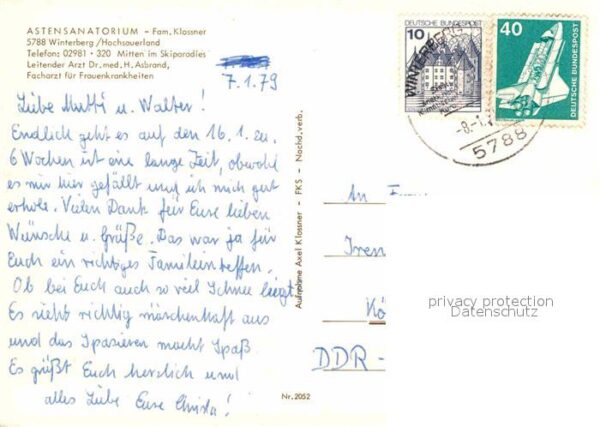 ASTENSANATORIUM - Fam. Klossner
5788 Winterberg / Hochsauerland
Telefon: 02981 · 320 Mitten im Skiparadies
Leitender Arzt Dr. med. H. Asbrand,
Facharzt für Frauenkrankheiten
7.1.79
Liebe Mutti u. Walter!
Endlich geht es auf den 16.1. zu.
6 Wochen ist eine lange Zeit, obwohl
es mir hier gefällt und ich mich gut
erhole. Vielen Dank für Eure lieben
Wünsche u. Grüße. Das war ja für
Euch ein richtiges Familientreffen.
Ob bei Euch auch so viel Schnee liegt?
Es sieht richtig märchenhaft aus
und das Spazieren macht Spaß
Es grüßt Euch herzlich und
alles Liebe Eure Christa!
Aufnahme Axel Klossner - FKS - Nachd. verb.
Nr. 2052
10 DEUTSCHE BUNDESPOST
40 DEUTSCHE BUNDESPOST
WINTERBERG
-8.-1.
5788
An
Iren
Kö
DDR-
privacy protection
Datenschutz